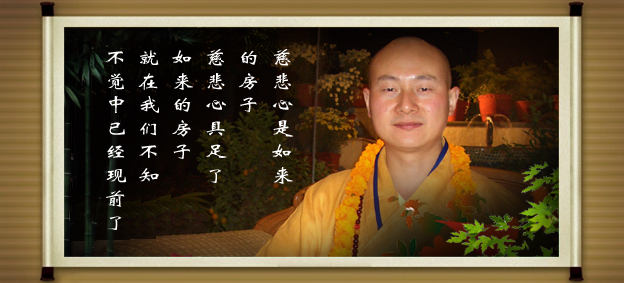 慈悲心是如来
的房子
慈悲心具足了
如来的房子
就在我们不知
不觉中已经现前了